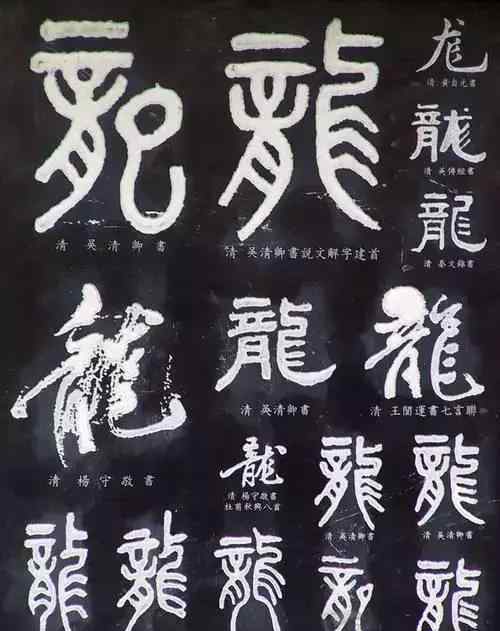 龍
清 吳清卿書
龍
清 吳清卿書說文解字建首
龙
清 黃自元書
龍
龍
清 秦文錦書
龍
清 楊守敬書
龍
清 吳清卿書
龍
清 王闓運書七言聯
龍
清 楊守敬書
杜甫秋興八首
龍
清 吳清卿書
龍
清 吳清卿書
龍
龍
龍
龍
龍